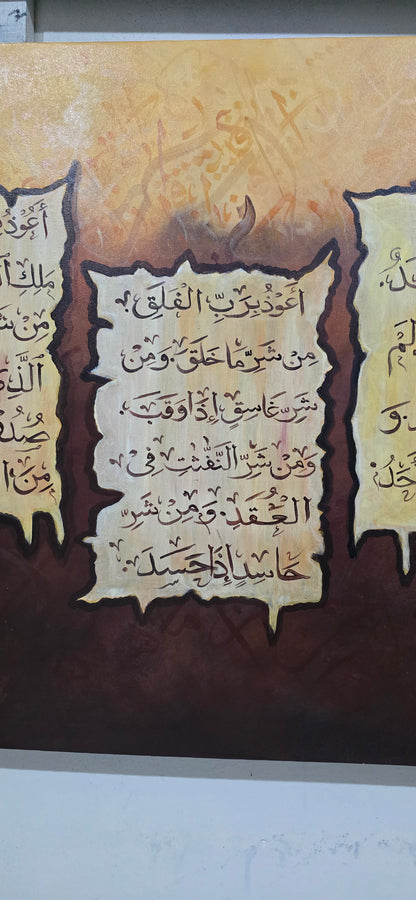 دُ.
لَمْ
د.وَ
حَدُ.
أَعُوذُ بِرَبِّ الْفَلَقِ.
مِن شَرِّ مَا خَلَقَ.وَمِن
شَرِّ غَاسِقٍ إِذَا وَقَبَ.
وَمِن شَرِّ النَّفَّٰثَٰتِ فِى
الْعُقَدِ.وَمِن شَرِّ
حَاسِدٍ إِذَا حَسَدَ.
أَعُوذُ
مَلِكِ ٱل
مِن شَ
ٱلَّذِى
صُدُ
مِنَ ا